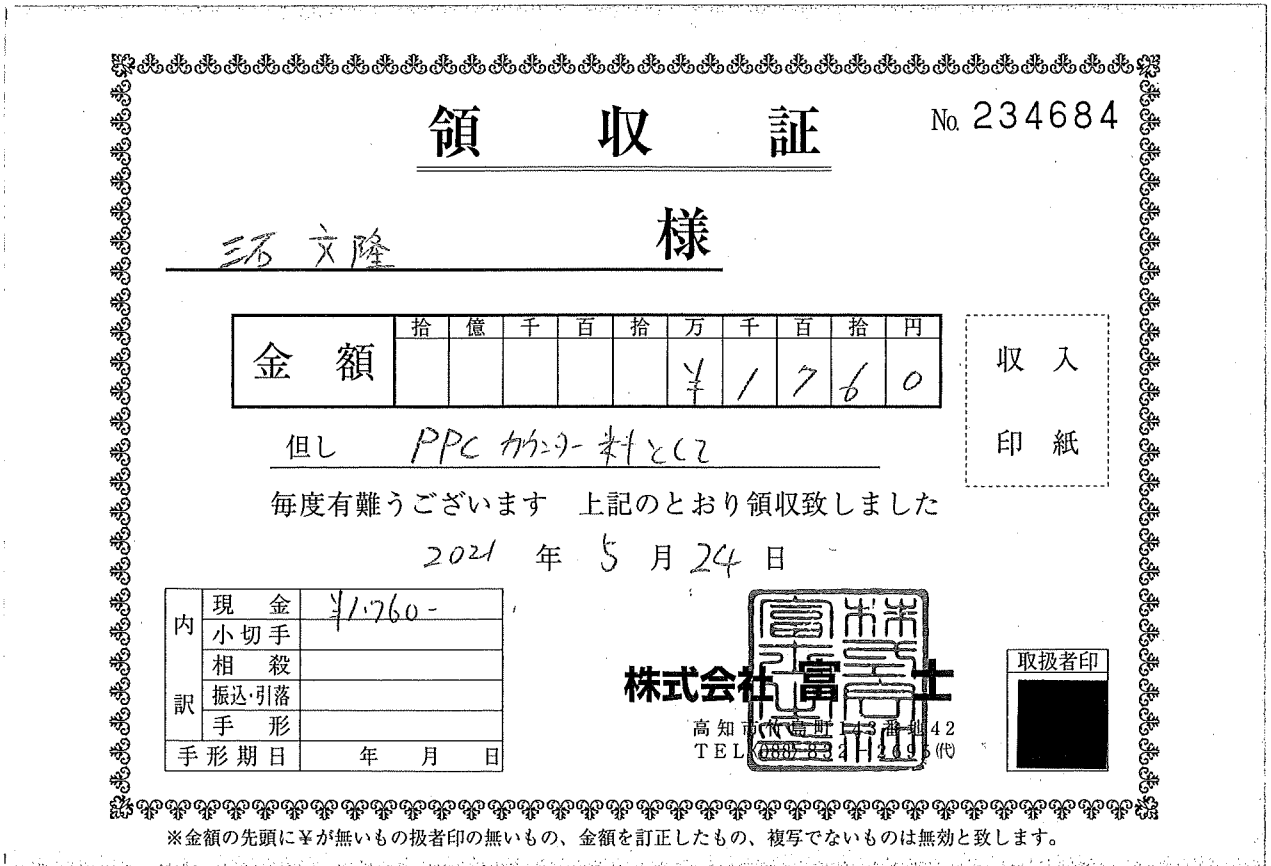 領収証
No. 234684
三石 文隆 様
拾 億 千 百 拾 万 千 百 拾 円
金額 ¥ 1 7 6 0
収入
印紙
但し PPC カウンター料として
毎度有難うございます 上記のとおり領収致しました
2021 年 5 月 24 日
内訳
現金 ¥1,760-
小切手
相殺
振込・引落
手形
手形期日 年 月 日
株式会社 富士
高知市竹島町143番地42
TEL(088)832-2695(代)
取扱者印
※金額の先頭に¥が無いもの扱者印の無いもの、金額を訂正したもの、複写でないものは無効と致します。